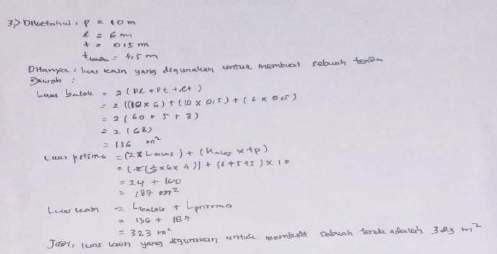 3.) Diketahui : p = 10 m
l = 6 m
t = 0,5 m
t = 4,5 m
Ditanya : luas kain yang digunakan untuk membuat sebuah tenda
Jawab :
Luas balok = 2 (pl + pt + lt)
= 2 ((10 x 6) + (10 x 0,5) + (6 x 0,5)
= 2 (60 + 5 + 3)
= 2 (68)
= 136 m²
Luas prisma = (2 x L alas) + (K alas x tp)
= (2 (½ x 6 x 4)) + (6 + 5 + 5) x 10
= 24 + 160
= 184 m²
Luas kain = L balok + L prisma
= 136 + 184
= 323 m²
Jadi, luas kain yang digunakan untuk membuat sebuah tenda adalah 323 m²